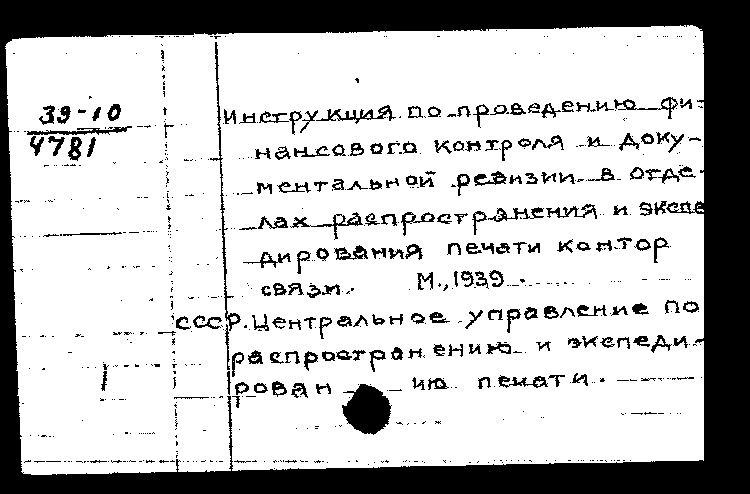 39-10
4781
Инструкция по проведению фи-
нансового контроля и доку-
ментальной ревизии в отде-
лах распространения и экспе
дирования печати контор
связи. М., 1939.
СССР. Центральное управление по
распространению и экспеди-
рован ию печати.